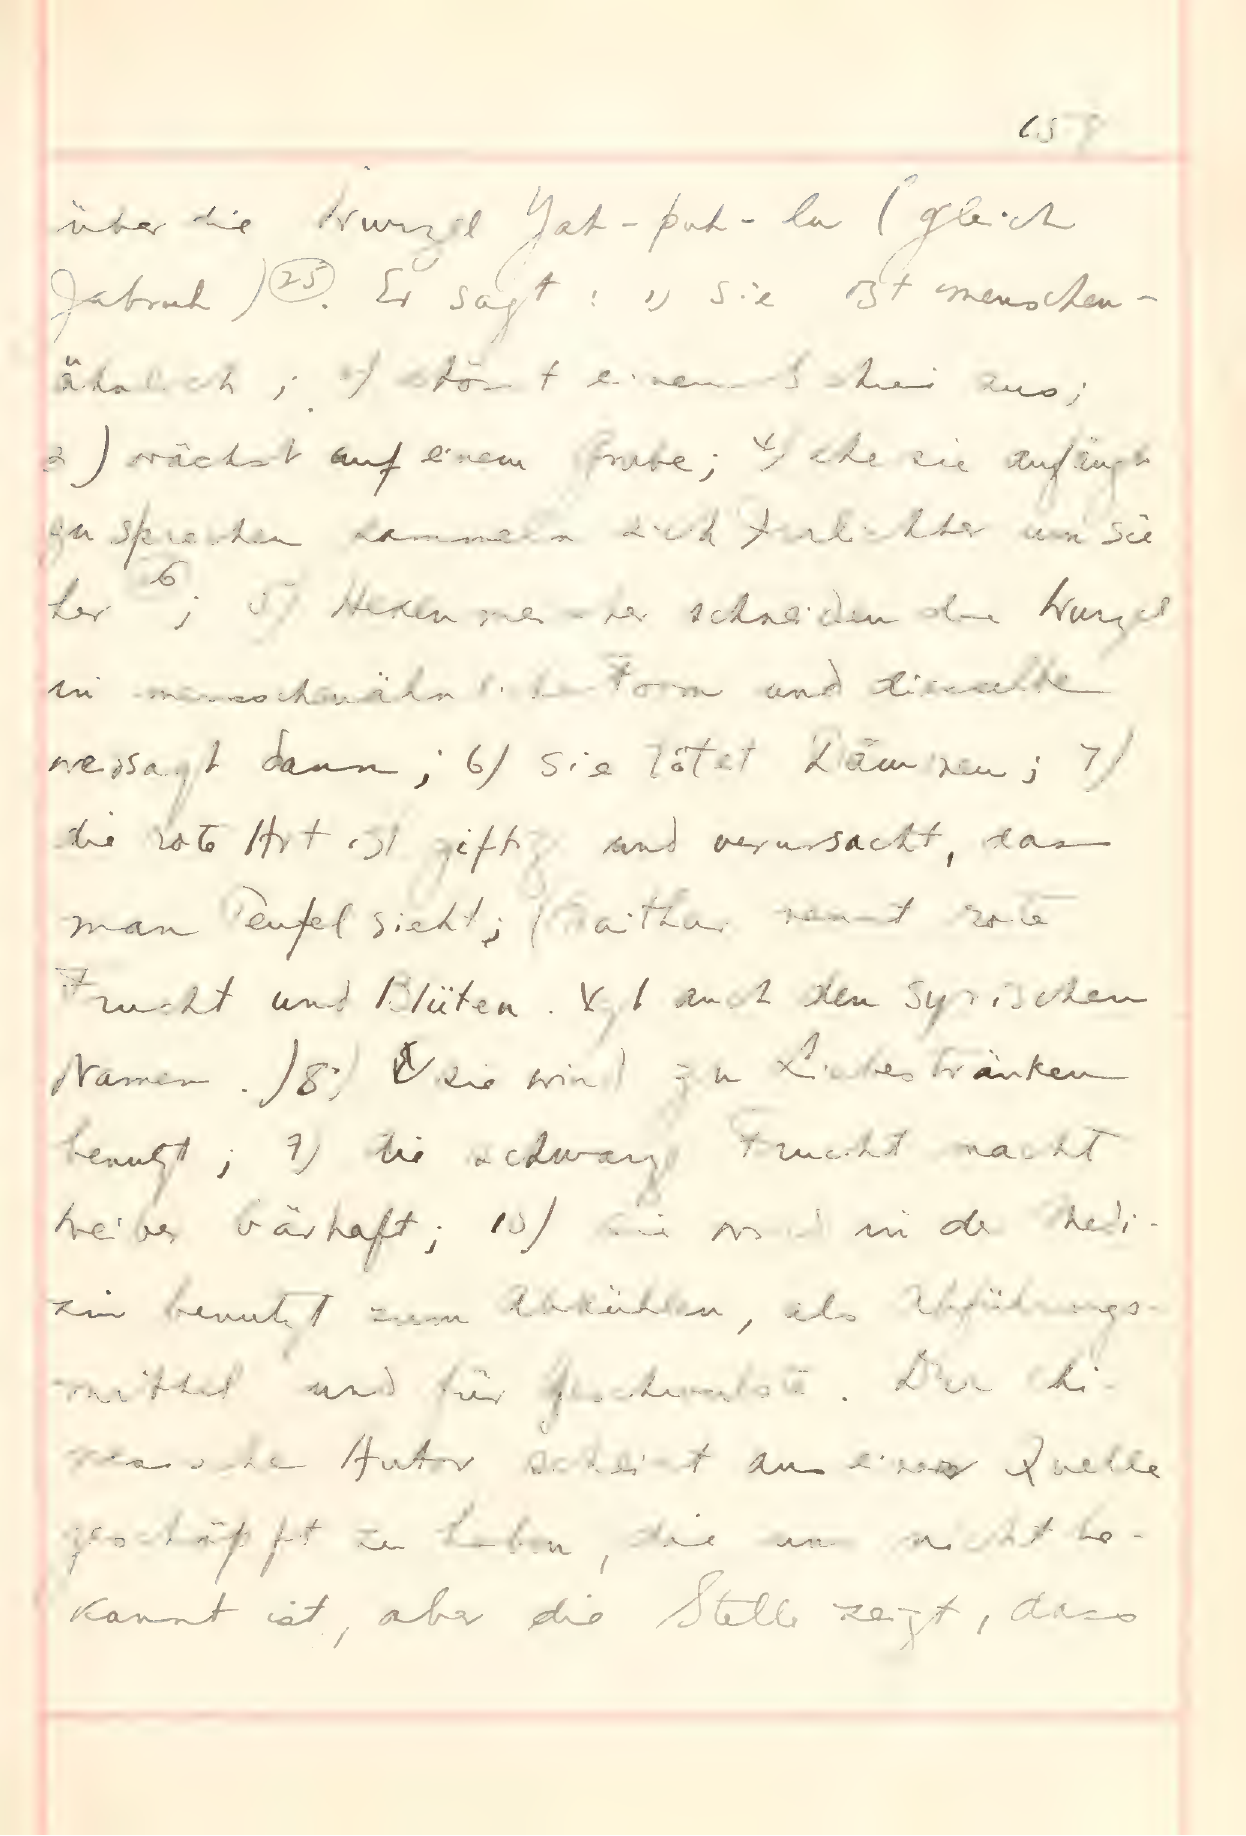 über die Wurzel Yah-puh-lu (gleich
Jabruh) 25. Er sagt: 1) sie ist menschen-
ähnlich; 2) stösst einen Schrei aus;
3) wächst auf einem Grabe; 4) ehe sie anfängt
zu sprechen sammeln sich Irrlichter um sie
her 6; 5) Hexenmeister schneiden die Wurzel
in menschenähnliche Form und dieselbe
versagt dann; 6) sie tötet Dämonen; 7)
die rote Art ist giftig und verursacht, dass
man Teufel sieht; (Baithar nennt rote
Frucht und Blüten. Vgl auch den syrischen
Namen.) 8) sie wird zu Liebestränken
benutzt; 9) die schwarze Frucht macht
Weiber bärhaft; 10) sie wird in der Medi-
zin benutzt zum Abkühlen, als Abführungs-
mittel und für Geschwulste. Der chi-
nesische Autor scheint aus einer Quelle
geschöpft zu haben, die uns nicht be-
kannt ist, aber die Stelle zeigt, dass